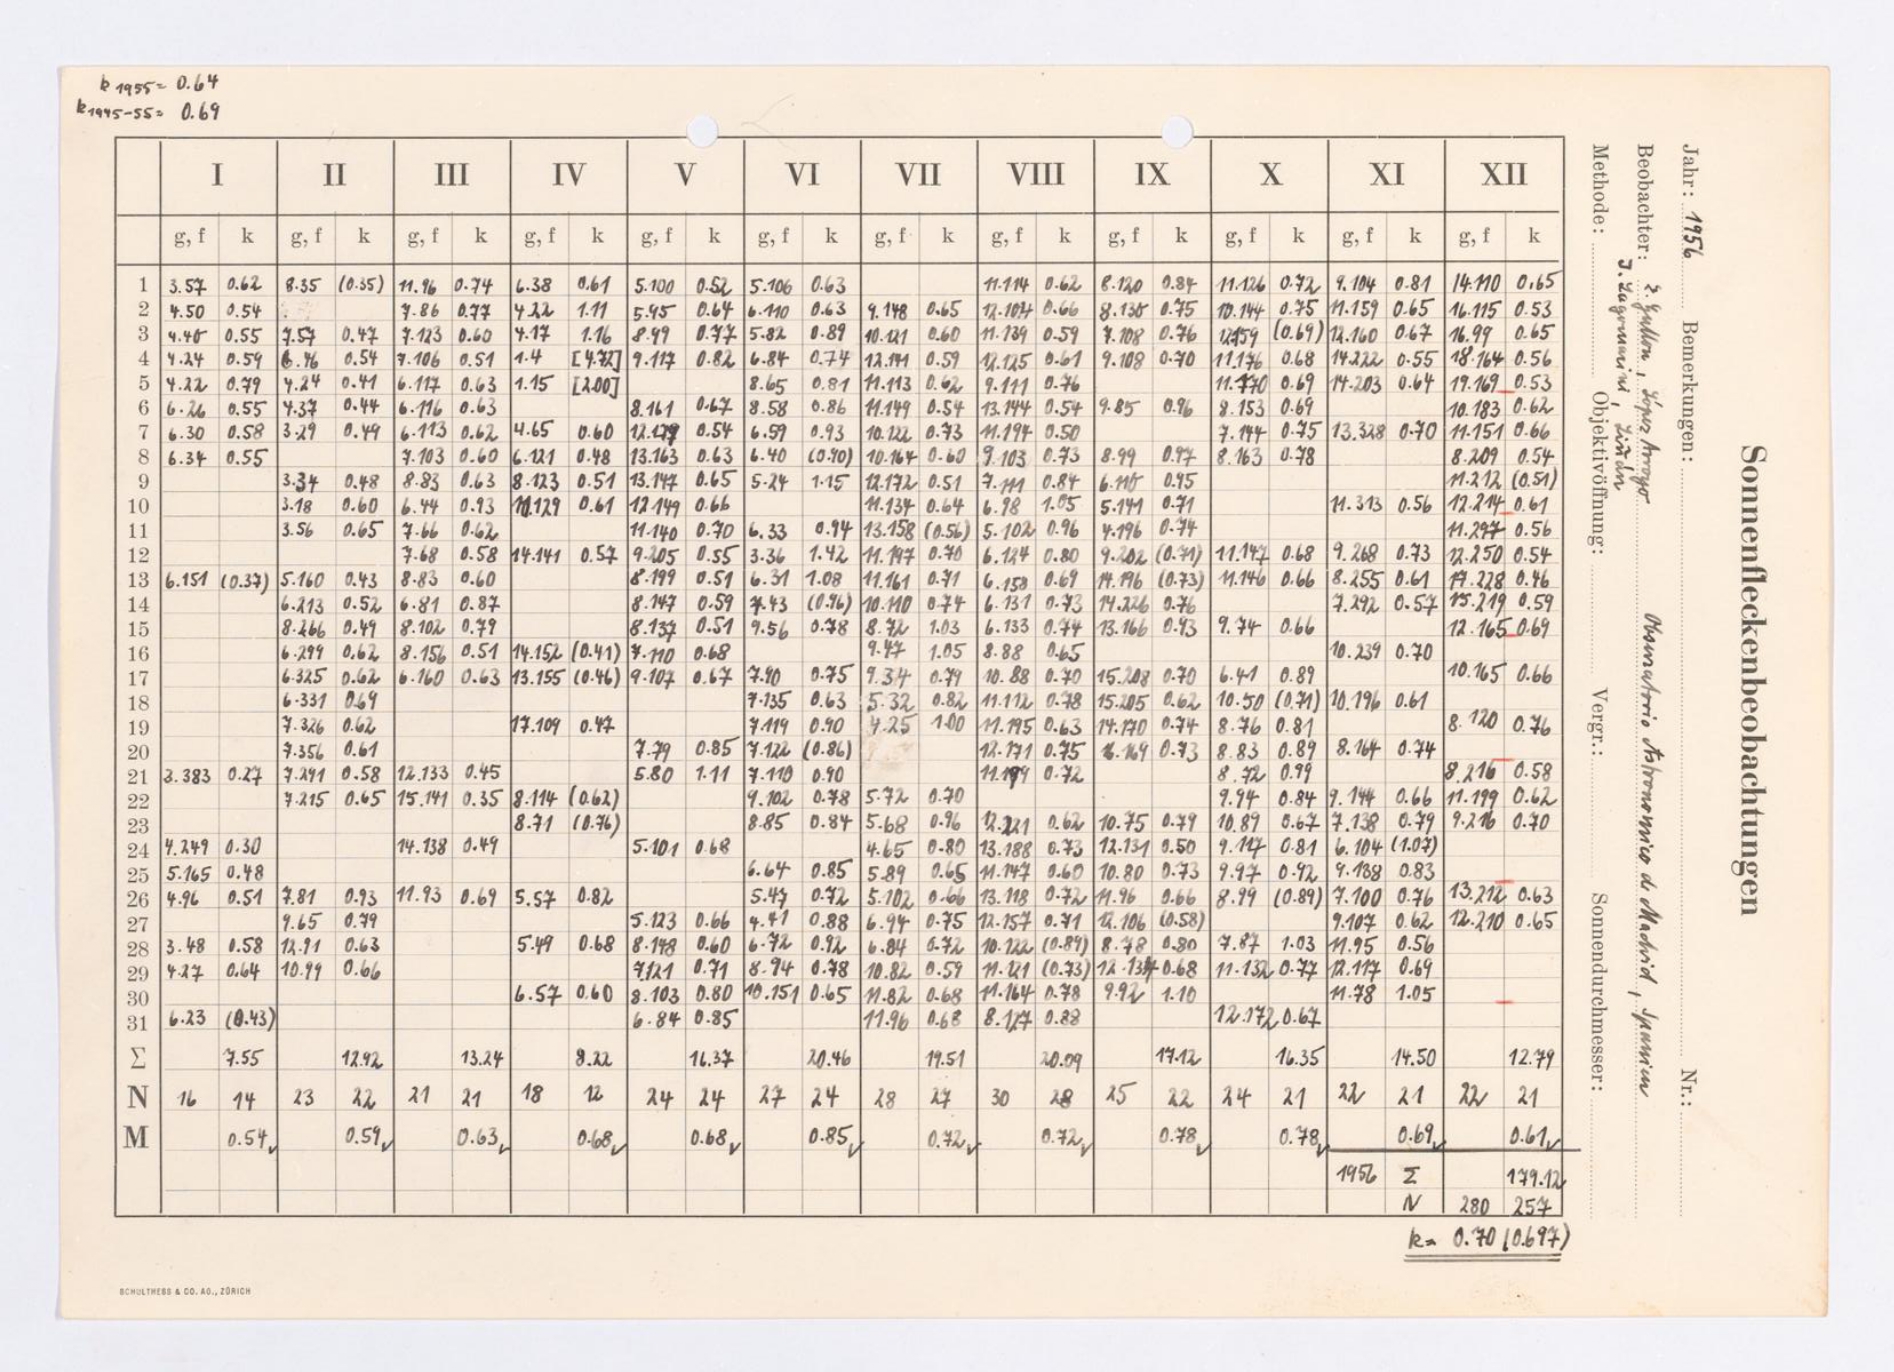 k 1955 = 0.64
k 1945-55 = 0.69
I II III IV V VI VII VIII IX X XI XII
g, f k g, f k g, f k g, f k g, f k g, f k g, f k g, f k g, f k g, f k g, f k g, f k
1 3.57 0.62 8.35 (0.35) 11.96 0.74 6.38 0.61 5.100 0.52 5.106 0.63 11.114 0.62 8.120 0.84 11.126 0.72 9.104 0.81 14.110 0.65
2 4.50 0.54 7.86 0.77 4.22 1.11 5.95 0.64 6.110 0.63 9.148 0.65 12.104 0.66 8.130 0.75 10.144 0.75 11.159 0.65 16.115 0.53
3 4.40 0.55 7.57 0.47 7.123 0.60 4.17 1.16 8.99 0.77 5.82 0.89 10.121 0.60 11.139 0.59 7.108 0.76 12.159 (0.69) 12.160 0.67 16.99 0.65
4 4.24 0.59 6.46 0.54 7.106 0.51 1.4 [4.72] 9.117 0.82 6.84 0.74 12.141 0.59 12.125 0.61 9.108 0.70 11.176 0.68 14.222 0.55 18.164 0.56
5 4.22 0.79 4.24 0.41 6.117 0.63 1.15 [2.00] 8.65 0.81 11.113 0.62 9.111 0.76 11.170 0.69 14.203 0.64 19.169 0.53
6 6.26 0.55 4.37 0.44 6.116 0.63 8.161 0.67 8.58 0.86 11.149 0.54 13.144 0.54 9.85 0.96 8.153 0.69 10.183 0.62
7 6.30 0.58 3.29 0.49 6.113 0.62 4.65 0.60 0.54 6.59 0.93 10.122 0.73 11.194 0.50 7.144 0.75 13.328 0.70 11.151 0.66
8 6.34 0.55 7.103 0.60 6.121 0.48 13.163 0.63 6.40 (0.90) 10.164 0.60 9.103 0.73 8.99 0.97 8.163 0.78 8.209 0.54
9 3.34 0.48 8.83 0.63 8.123 0.51 13.147 0.65 5.24 1.15 12.172 0.51 7.111 0.84 6.110 0.95 11.212 (0.51)
10 3.18 0.60 6.44 0.93 11.129 0.61 12.149 0.66 11.134 0.64 6.98 1.05 5.141 0.71 11.313 0.56 12.214 0.61
11 3.56 0.65 7.66 0.62 11.140 0.70 6.33 0.94 13.158 (0.56) 5.102 0.96 4.196 0.74 11.297 0.56
12 7.68 0.58 14.141 0.57 9.205 0.55 3.36 1.42 11.147 0.70 6.124 0.80 9.202 (0.71) 11.147 0.68 9.268 0.73 12.250 0.54
13 6.151 (0.37) 5.160 0.43 8.83 0.60 8.199 0.51 6.31 1.08 11.161 0.71 6.150 0.69 14.196 (0.73) 11.146 0.66 8.255 0.61 17.228 0.46
14 6.213 0.52 6.81 0.87 8.147 0.59 7.43 (0.96) 10.110 0.74 6.131 0.73 14.226 0.76 7.292 0.57 15.219 0.59
15 8.266 0.49 8.102 0.79 8.137 0.51 9.56 0.78 8.72 1.03 6.133 0.74 13.166 0.93 9.74 0.66 12.165 0.69
16 6.299 0.62 8.156 0.51 14.152 (0.41) 7.110 0.68 9.47 1.05 8.88 0.65 10.239 0.70
17 6.325 0.62 6.160 0.63 13.155 (0.46) 9.107 0.67 7.90 0.75 9.34 0.79 10.88 0.70 15.208 0.70 6.41 0.89 10.165 0.66
18 6.331 0.69 7.135 0.63 5.32 0.82 11.112 0.78 15.205 0.62 10.50 (0.71) 10.196 0.61
19 7.326 0.62 17.109 0.47 7.119 0.90 4.25 1.00 11.195 0.63 14.170 0.74 8.76 0.81 8.120 0.76
20 7.356 0.61 7.79 0.85 7.122 (0.86) 12.171 0.75 0.73 8.83 0.89 8.164 0.74
21 3.383 0.27 7.291 0.58 12.133 0.45 5.80 1.11 7.110 0.90 0.72 8.72 0.99 8.216 0.58
22 7.215 0.65 15.141 0.35 8.114 (0.62) 9.102 0.78 5.72 0.70 9.94 0.84 9.144 0.66 11.199 0.62
23 8.71 (0.76) 8.85 0.84 5.68 0.96 12.221 0.62 10.75 0.79 10.89 0.67 7.138 0.79 9.216 0.70
24 4.249 0.30 14.138 0.49 5.101 0.68 4.65 0.80 13.188 0.73 12.131 0.50 9.117 0.81 6.104 (1.07)
25 5.165 0.48 6.64 0.85 5.89 0.65 11.147 0.60 10.80 0.73 9.97 0.92 9.138 0.83
26 4.96 0.51 7.81 0.93 11.93 0.69 5.57 0.82 5.47 0.72 5.102 0.66 13.118 0.72 11.96 0.66 8.99 (0.89) 7.100 0.76 13.212 0.63
27 9.65 0.79 5.123 0.66 4.41 0.88 6.94 0.75 12.157 0.71 12.106 (0.58) 9.107 0.62 12.210 0.65
28 3.48 0.58 12.91 0.63 5.49 0.68 8.148 0.60 6.72 0.92 6.84 0.72 10.122 (0.89) 8.78 0.80 7.87 1.03 11.95 0.56
29 4.27 0.64 10.99 0.66 7.121 0.71 8.94 0.78 10.82 0.59 11.121 (0.73) 0.68 11.132 0.77 12.117 0.69
30 6.57 0.60 8.103 0.80 10.151 0.65 11.82 0.68 11.164 0.78 9.92 1.10 11.78 1.05
31 6.23 (0.43) 6.84 0.85 11.96 0.68 8.127 0.88 12.172 0.67
Σ 7.55 12.92 13.24 8.22 16.37 20.46 19.51 20.09 17.12 16.35 14.50 12.79
N 16 14 23 22 21 21 18 12 24 24 27 24 28 27 30 28 25 22 24 21 22 21 22 21
M 0.54 0.59 0.63 0.68 0.68 0.85 0.72 0.72 0.78 0.78 0.69 0.61
1956 Σ 179.12
N 280 257
k = 0.70 (0.697)
SCHULTHESS & CO. AG., ZÜRICH
Sonnenfleckenbeobachtungen
Jahr: 1956 Bemerkungen: Nr.:
Beobachter: Gullon, López Arroyo Observatorio Astronomico de Madrid, Spanien
Methode: Objektivöffnung: Vergr.: Sonnendurchmesser: